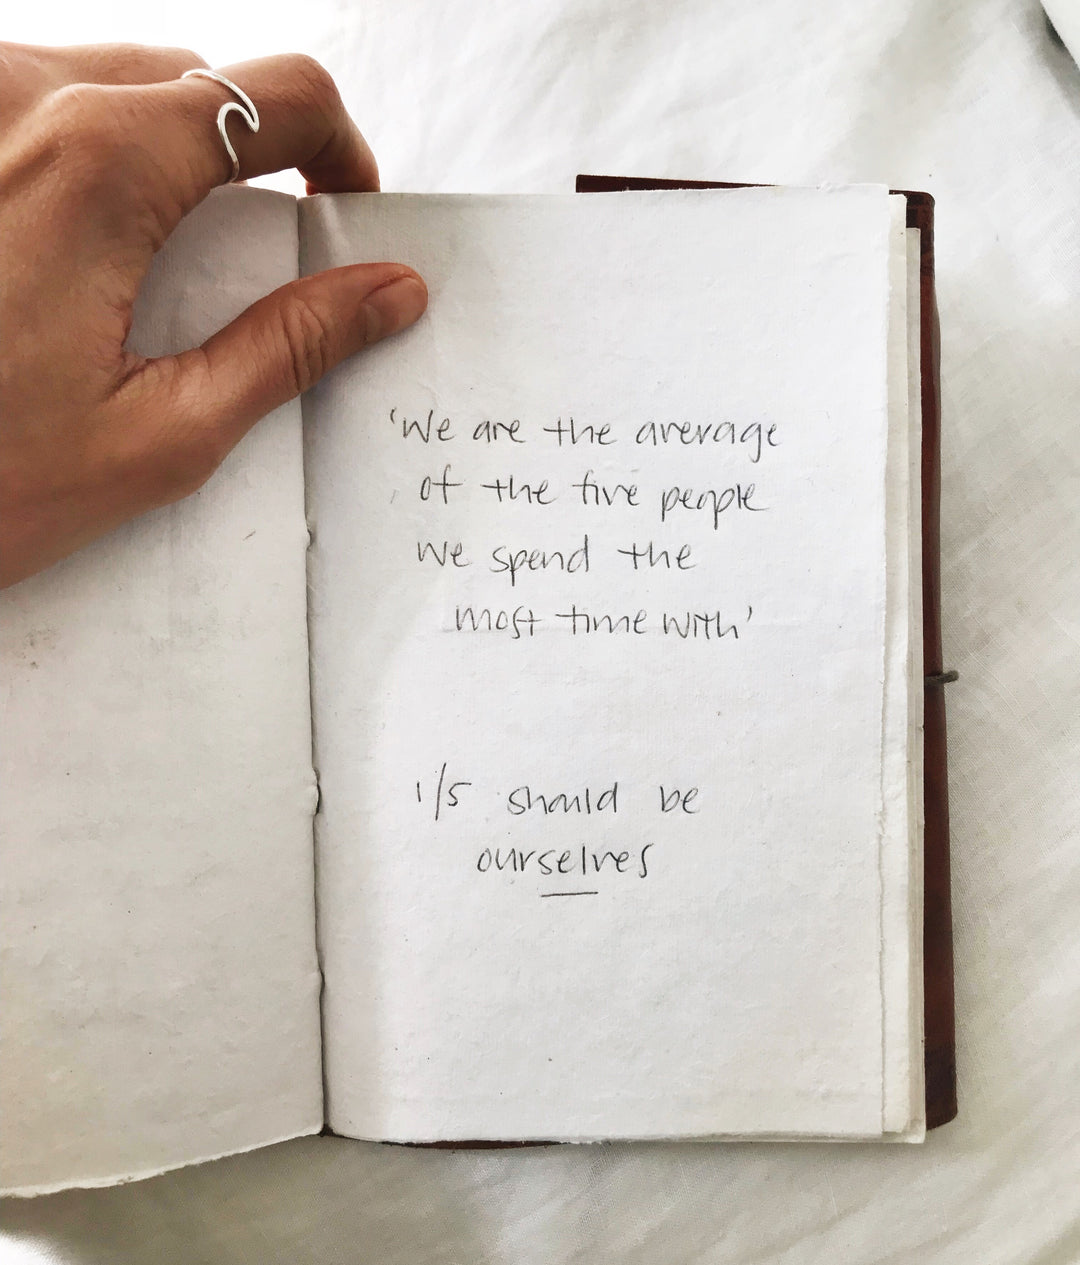 'We are the average
of the five people
we spend the
most time with'
1/5 should be
ourselves